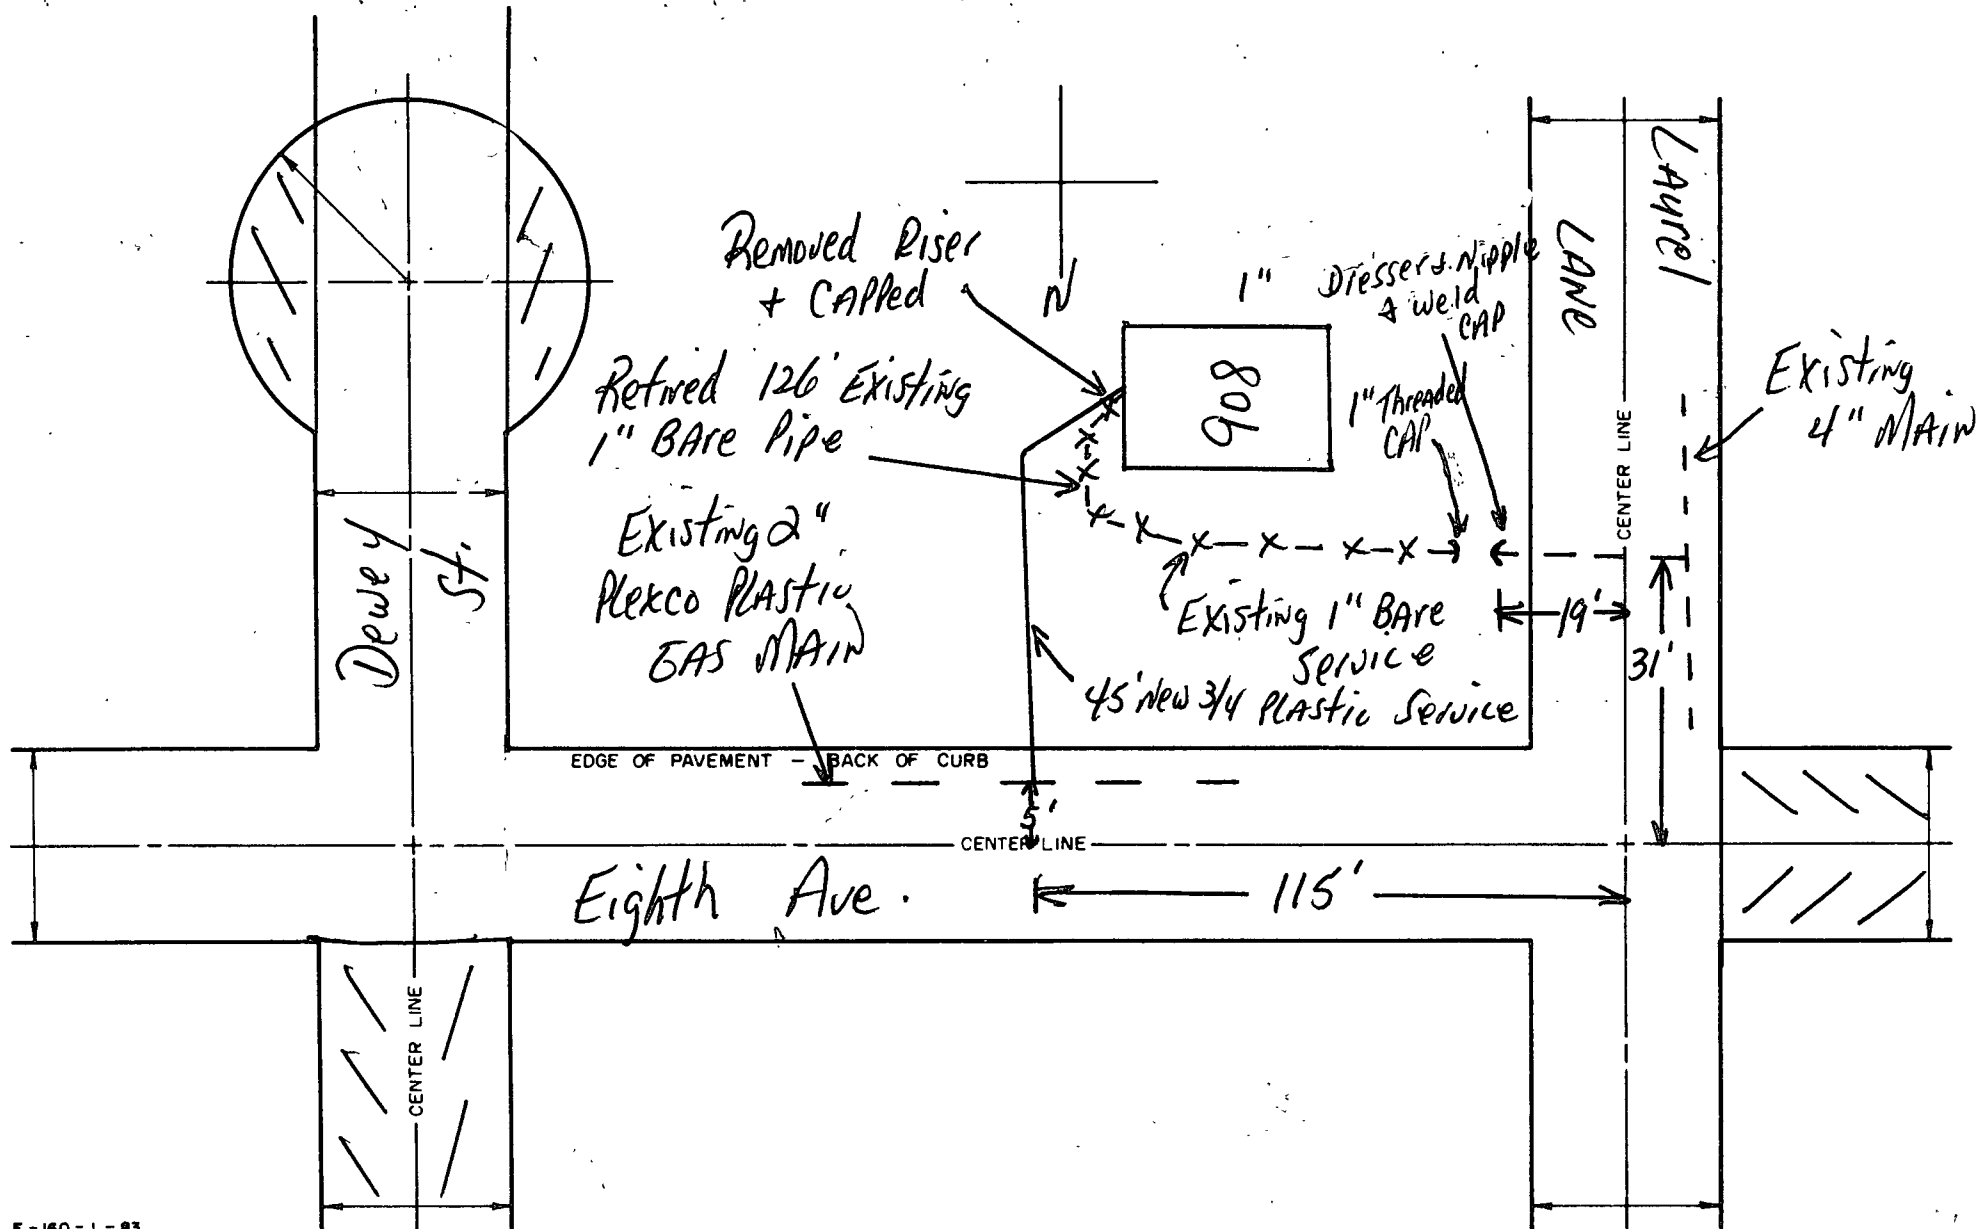 Laurel
Lane
Removed Riser
+ CAPPed
N
1"
Dresser & Nipple
& weld
CAP
908
1" Threaded
CAP
Existing
4" MAIN
Retired 126' Existing
1" BAre Pipe
CENTER LINE
Existing 2"
Plexco PLAStic
GAS MAIN
Dewey
St.
Existing 1" BAre
Service
19'
31'
45' New 3/4 PLAStic Service
EDGE OF PAVEMENT – BACK OF CURB
5'
CENTER LINE
Eighth Ave.
115'
CENTER LINE
F-160-1-83